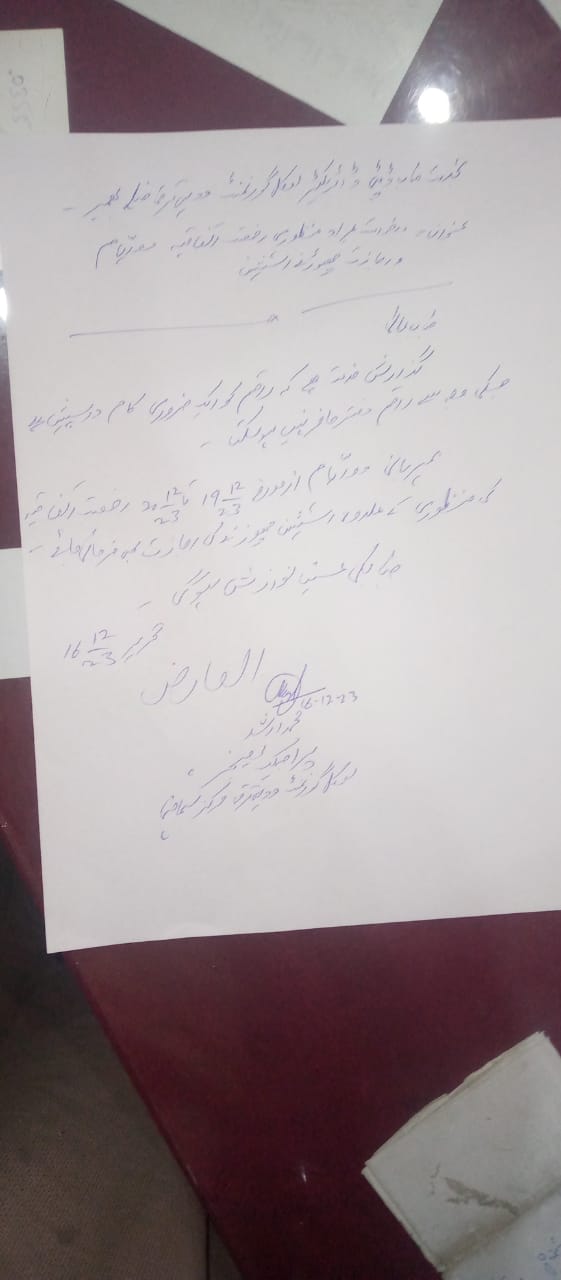 بخدمت جناب ڈپٹی ڈائریکٹر لوکل گورنمنٹ و دیہی ترقی ضلع بھمبر ۔
عنوان:- درخواست بمراد منظوری رخصت اتفاقیہ دو یوم
و اجازت چھوڑنے اسٹیشن
جناب عالی
گذارش خدمت ہے کہ راقم کو ایک ضروری کام درپیش ہے
جسکی وجہ سے راقم دفتر حاضر نہیں ہو سکتا ۔
مہربانی دو یوم ازمورخہ 19 12/23 تا 20 12/23 رخصت اتفاقیہ
کی منظوری کے علاوہ اسٹیشن چھوڑنے کی اجازت فرمائی جائے ۔
جناب کی عین نوازش ہوگی ۔
تحریر 16 12/23
العارض
16-12-23
محمد ارشد
پراجیکٹ منیجر
لوکل گورنمنٹ و دیہی ترقی مرکز سماہنی